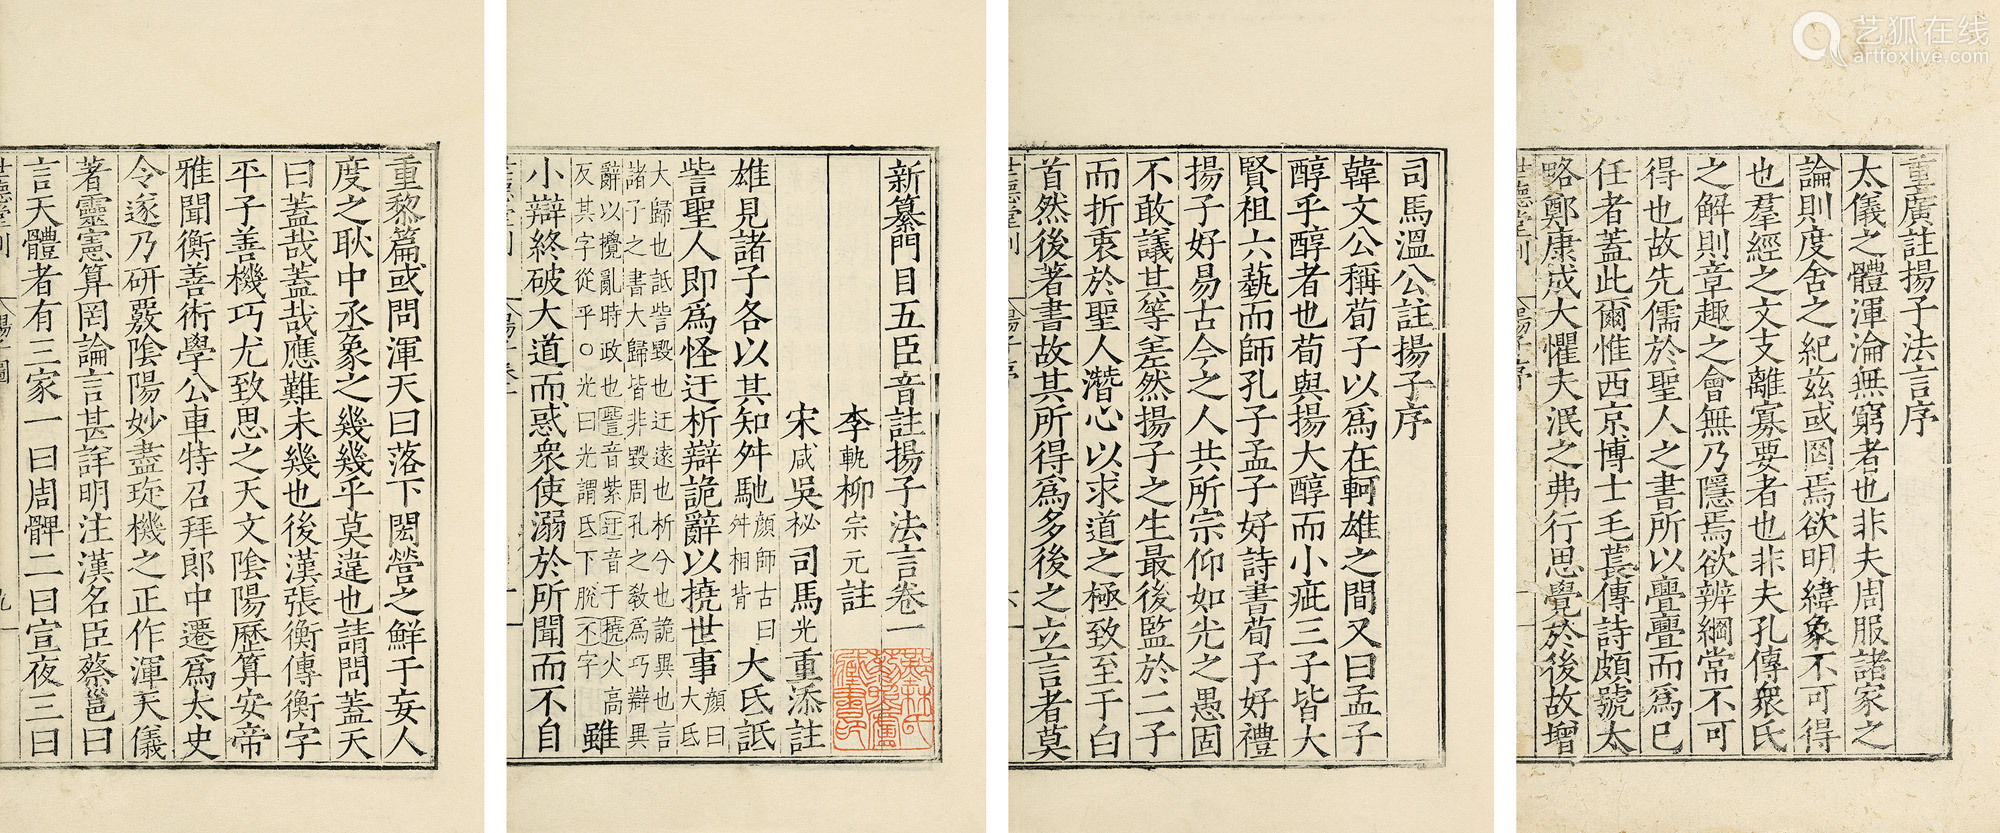 重廣註揚子法言序
太儀之體渾淪無窮者也非夫周服諸家之
論則度舍之紀茲或罔焉欲明緯象不可得
也羣經之文支離寡要者也非夫孔傳衆氏
之解則章趣之會無乃隱焉欲辨綱常不可
得也故先儒於聖人之書所以亹亹而爲已
任者蓋此爾惟西京博士毛萇傳詩頗號太
略鄭康成大懼夫泯之弗行思覺於後故增
司馬溫公註揚子序
韓文公稱荀子以爲在軻雄之間又曰孟子
醇乎醇者也荀與揚大醇而小疵三子皆大
賢祖六藝而師孔子孟子好詩書荀子好禮
揚子好易古今之人共所宗仰如光之愚固
不敢議其等差然揚子之生最後監於二子
而折衷於聖人潛心以求道之極致至于白
首然後著書故其所得爲多後之立言者莫
新纂門目五臣音註揚子法言卷一
李軌柳宗元註
宋咸吳祕司馬光重添註
雄見諸子各以其知舛馳顔師古曰舛相背大氐詆
訾聖人即爲怪迂析辯詭辭以撓世事顔曰大氐
大歸也詆訾毀也迂遠也析分也詭異也言
諸子之書大歸皆非毀周孔之敎爲巧辯異
辭以攪亂時政也訾音紫迂音于撓火高
反其字從乎○光曰光謂氐下脫不字雖
小辯終破大道而惑衆使溺於所聞而不自
重黎篇或問渾天曰落下閎營之鮮于妄人
度之耿中丞象之幾幾乎莫違也請問蓋天
曰蓋哉蓋哉應難未幾也後漢張衡傳衡字
平子善機巧尤致思之天文陰陽歷算安帝
雅聞衡善術學公車特召拜郎中遷爲太史
令遂乃研覈陰陽妙盡琁機之正作渾天儀
著靈憲算罔論言甚詳明注漢名臣蔡邕曰
言天體者有三家一曰周髀二曰宣夜三曰
艺狐在线
artfoxlive.com